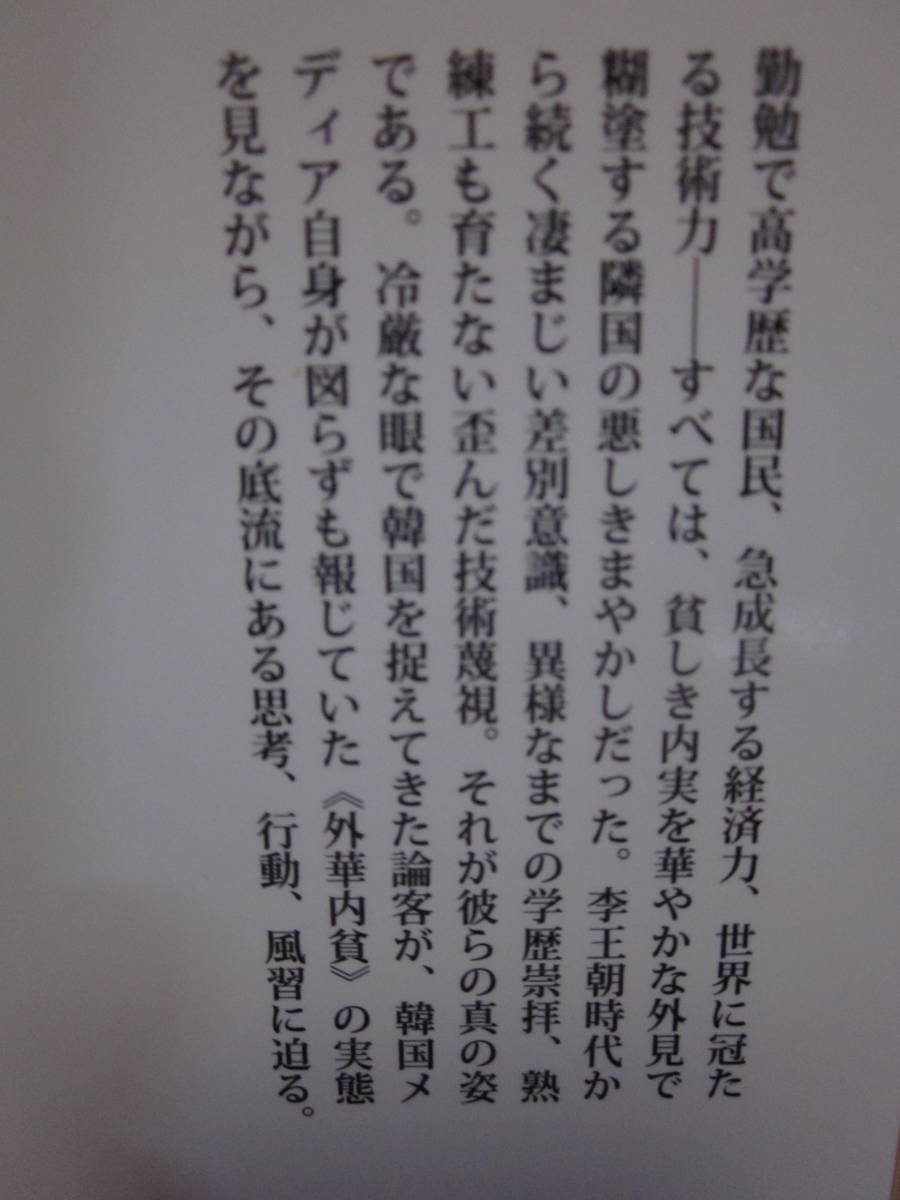 勤勉で高学歴な国民、急成長する経済力、世界に冠た
る技術力――すべては、貧しき内実を華やかな外見で
糊塗する隣国の悪しきまやかしだった。李王朝時代か
ら続く凄まじい差別意識、異様なまでの学歴崇拝、熟
練工も育たない歪んだ技術蔑視。それが彼らの真の姿
である。冷厳な眼で韓国を捉えてきた論客が、韓国メ
ディア自身が図らずも報じていた《外華内貧》の実態
を見ながら、その底流にある思考、行動、風習に迫る。